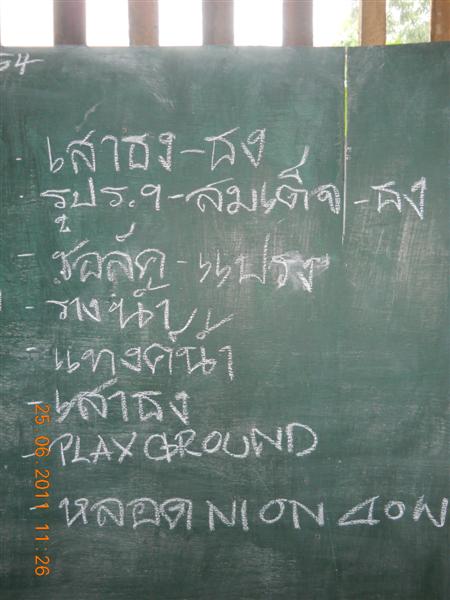 54
- เสาธง-ธง
- รูปร.๙-สมเด็จ-ธง
- ช๊อล์ค-แปรง
- รางน้ำ
- แทงค์น้ำ
- เสาธง
- PLAYGROUND
หลอด NION 40W
25.06.2011 11:26